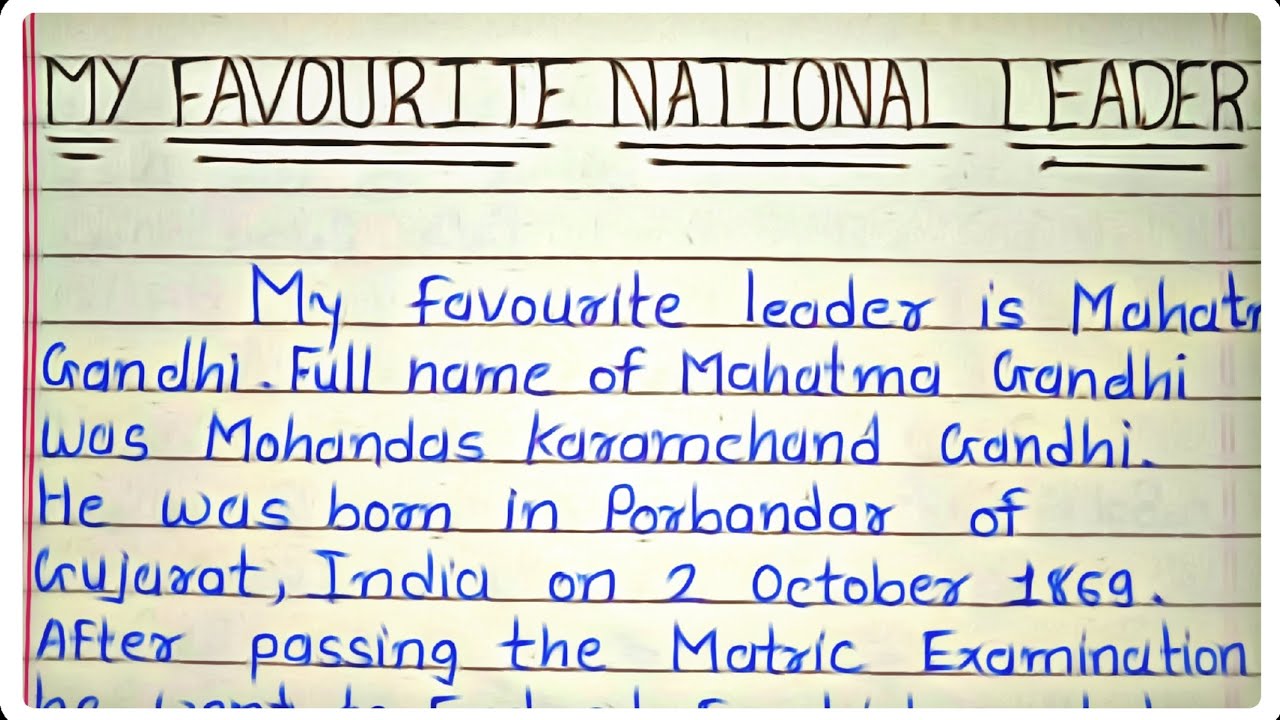 MY FAVOURITE NATIONAL LEADER
My favourite leader is Mahatm
Gandhi. Full name of Mahatma Gandhi
was Mohandas Karamchand Gandhi.
He was born in Porbandar of
Gujarat, India on 2 October 1869.
After passing the Matric Examination
he went to